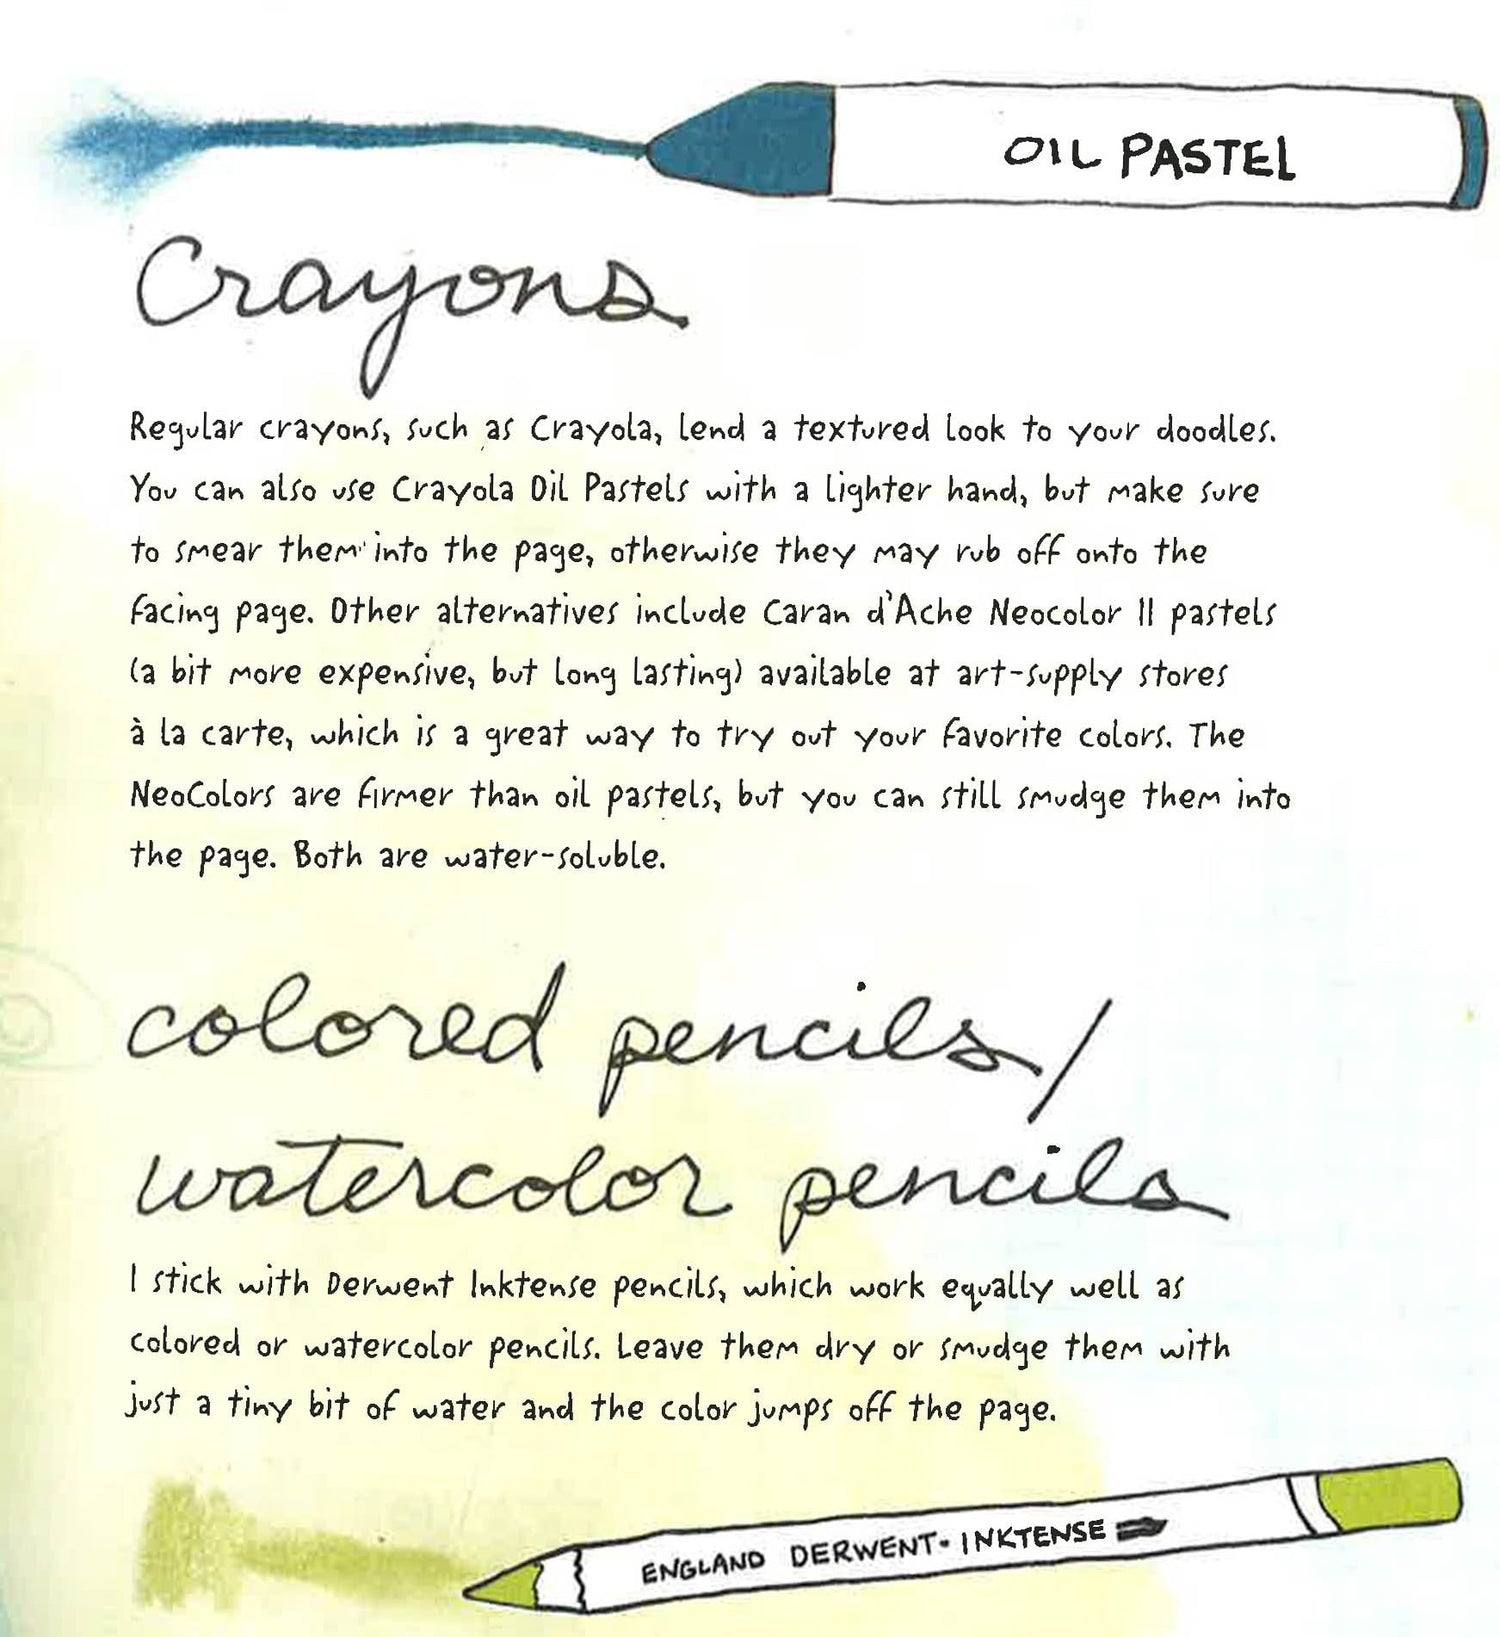 OIL PASTEL
Crayons
Regular crayons, such as Crayola, lend a textured look to your doodles.
You can also use Crayola Oil Pastels with a lighter hand, but make sure
to smear them into the page, otherwise they may rub off onto the
facing page. Other alternatives include Caran d'Ache Neocolor II pastels
(a bit more expensive, but long lasting) available at art-supply stores
à la carte, which is a great way to try out your favorite colors. The
NeoColors are firmer than oil pastels, but you can still smudge them into
the page. Both are water-soluble.
colored pencils/
watercolor pencils
I stick with Derwent Inktense pencils, which work equally well as
colored or watercolor pencils. Leave them dry or smudge them with
just a tiny bit of water and the color jumps off the page.
ENGLAND DERWENT- INKTENSE